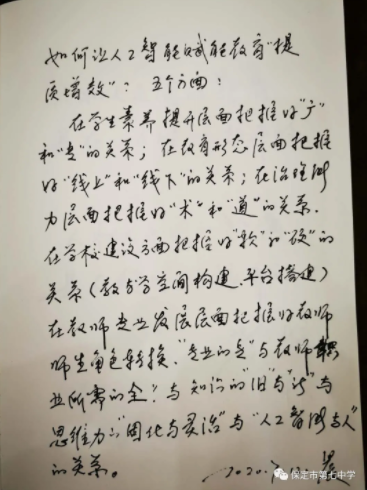 如何让人工智能赋能教育“提
质增效”？五个方面：
在学生素养提升层面把握好“广”
和“专”的关系；在教育形态层面把握
好“线上”和“线下”的关系；在治理能
力层面把握好“术”和“道”的关系.
在学校建设方面把握好“软”和“硬”的
关系（教与学空间构建.平台搭建）
在教师专业发展层面把握好教师
师生角色转换、“专业的专”与教师职
业所需的全”与知识的“旧”与“新”与
思维力之“固化与灵活”与“人工智能与人”
的关系。
2020.
保定市第七中学